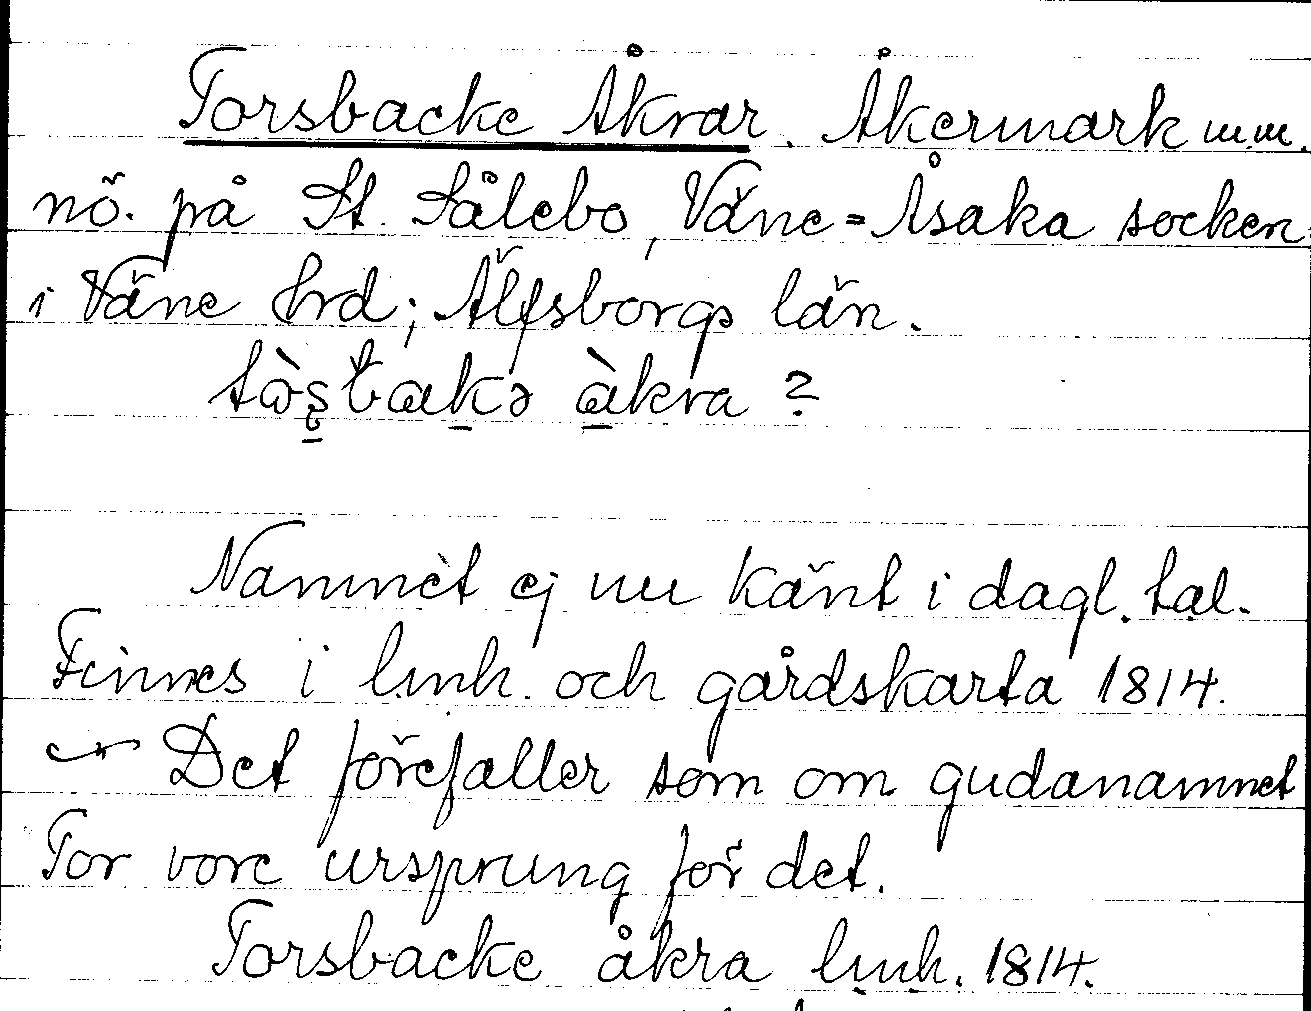 Torsbacke Åkrar. Åkermark m.m.
nö. på St. Sålebo, Väne=Åsaka socken
i Väne hrd; Älfsborgs län.
åkra ?
Namnet ej nu känt i dagl. tal.
Finnes i l.m.h. och gårdskarta 1814.
Det förefaller som om gudanamnet
Tor vore ursprung för det.
Torsbacke åkra l.m.h. 1814.